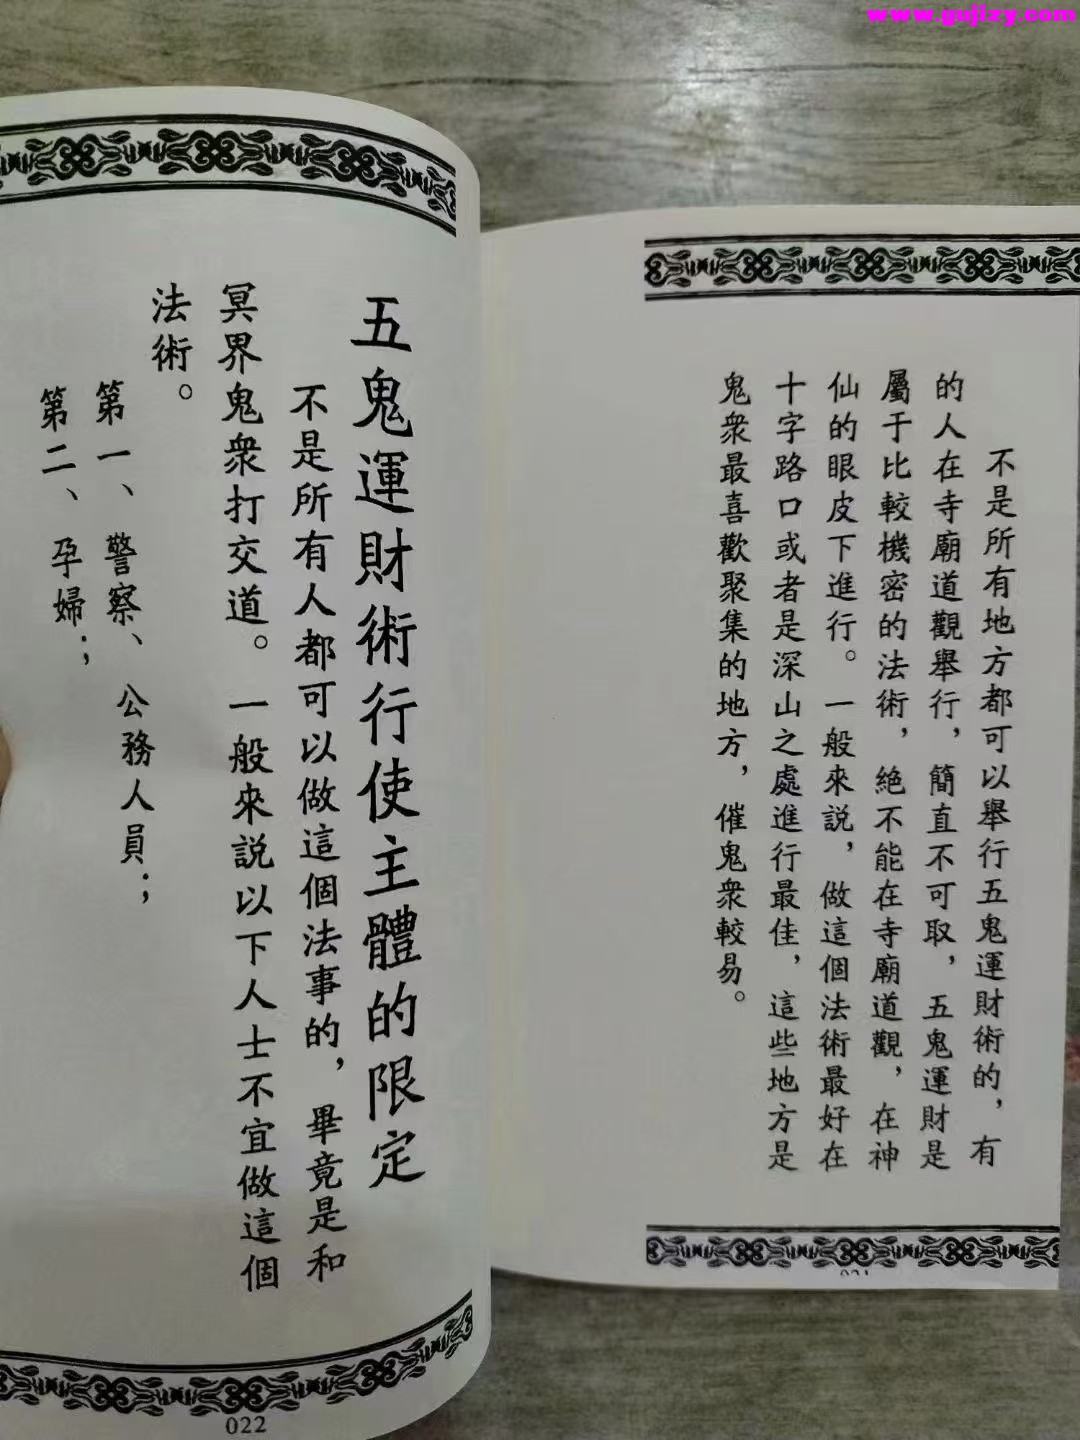 www.gujizy.com
不是所有地方都可以舉行五鬼運財術的，有
的人在寺廟道觀舉行，簡直不可取，五鬼運財是
屬于比較機密的法術，絕不能在寺廟道觀，在神
仙的眼皮下進行。一般來説，做這個法術最好在
十字路口或者是深山之處進行最佳，這些地方是
鬼衆最喜歡聚集的地方，催鬼衆較易。
021
五鬼運財術行使主體的限定
不是所有人都可以做這個法事的，畢竟是和
冥界鬼衆打交道。一般來説以下人士不宜做這個
法術。
第一、警察、公務人員；
第二、孕婦；
022